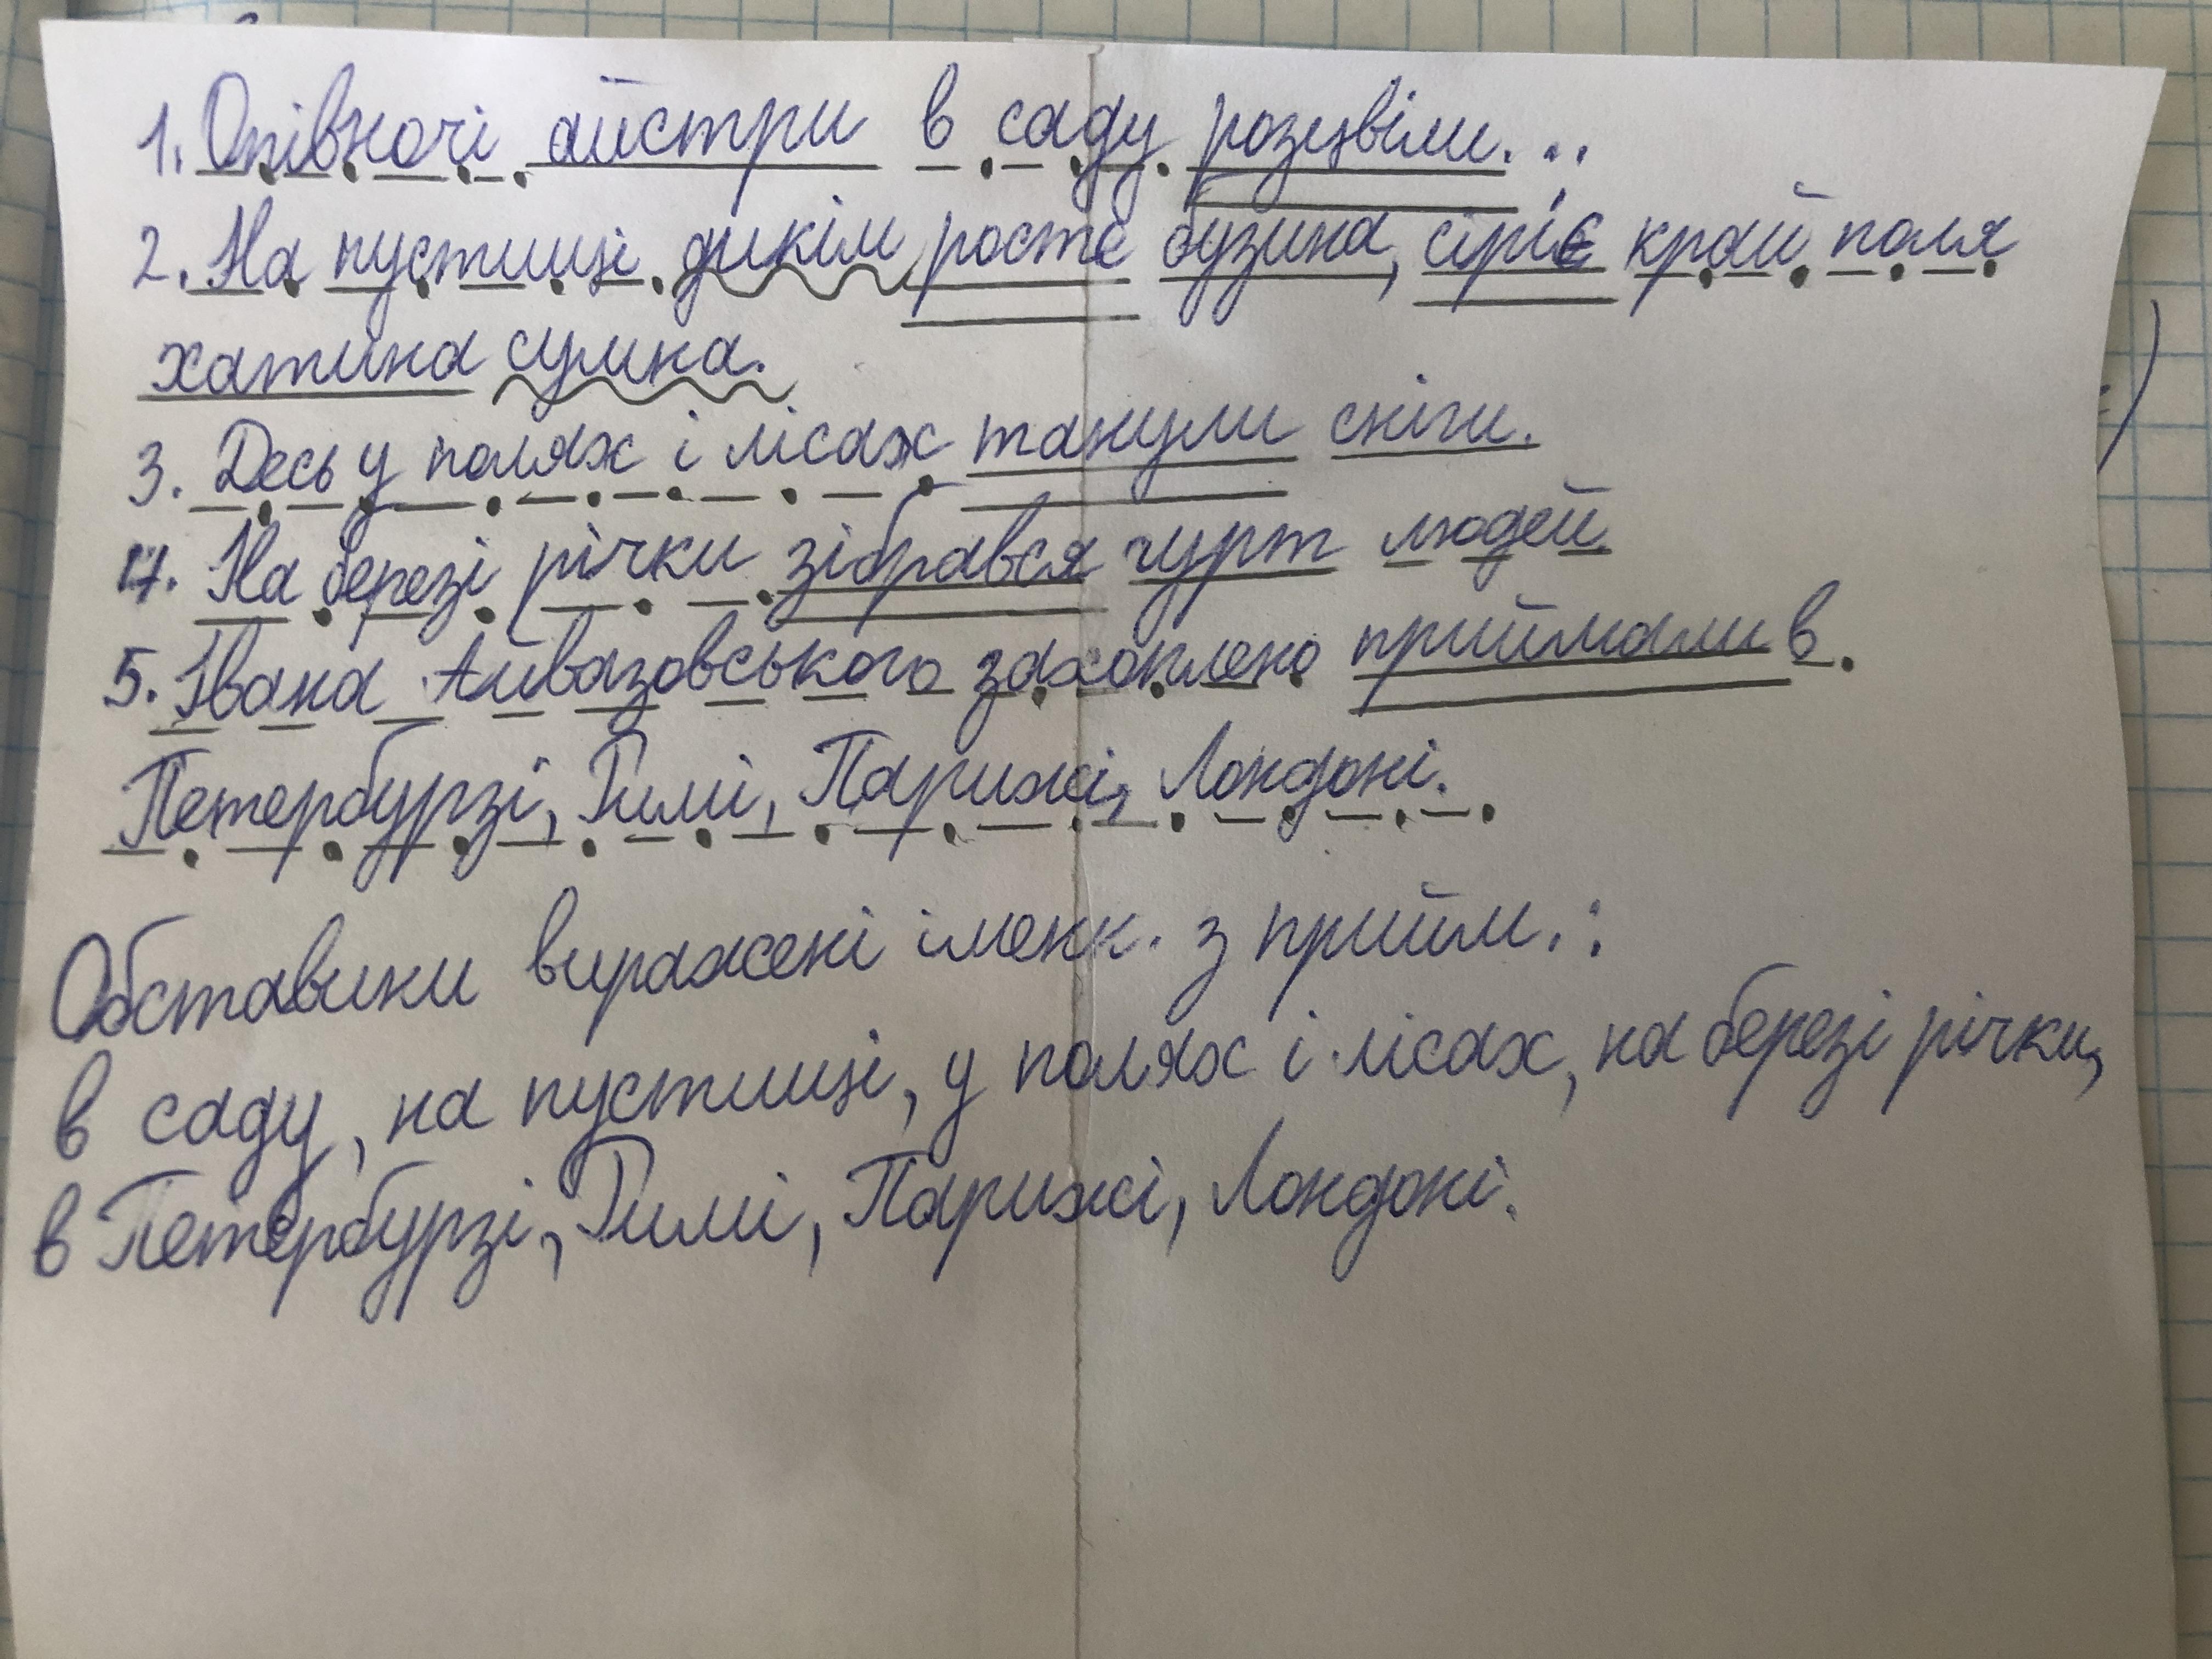 1. Опівночі айстри в саду розцвіли...
2. На пустищі дикім росте бузина, сіріє край поля
хатина сумна.
3. Десь у полях і лісах танули сніги.
4. На березі річки зібрався гурт людей.
5. Івана Айвазовського захоплено приймали в
Петербурзі, Римі, Парижі, Лондоні.
Обставини виражені іменн. з прийм.:
в саду, на пустищі, у полях і лісах, на березі річки,
в Петербурзі, Римі, Парижі, Лондоні.